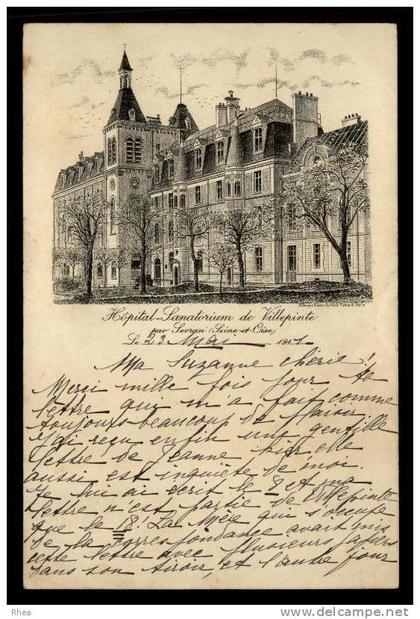 Hôpital-Sanatorium de Villepinte
par Sevran (Seine-et-Oise)
Le 23 1917
Ma Suzanne chérie !
Merci mille fois pour ta
lettre qui m'a fait comme
toujours beaucoup de plaisir
J'ai reçu enfin une gentille
lettre de Jeanne hier elle
aussi est inquiète de moi.
Je lui ai écrit le 2 et ma
lettre n'est partie de Villepinte
que le 18. La Mère qui s'occupe
de la correspondance avait mis
cette lettre avec plusieurs papiers
dans son tiroir, et l'autre jour
Rhea
www.delcampe.net